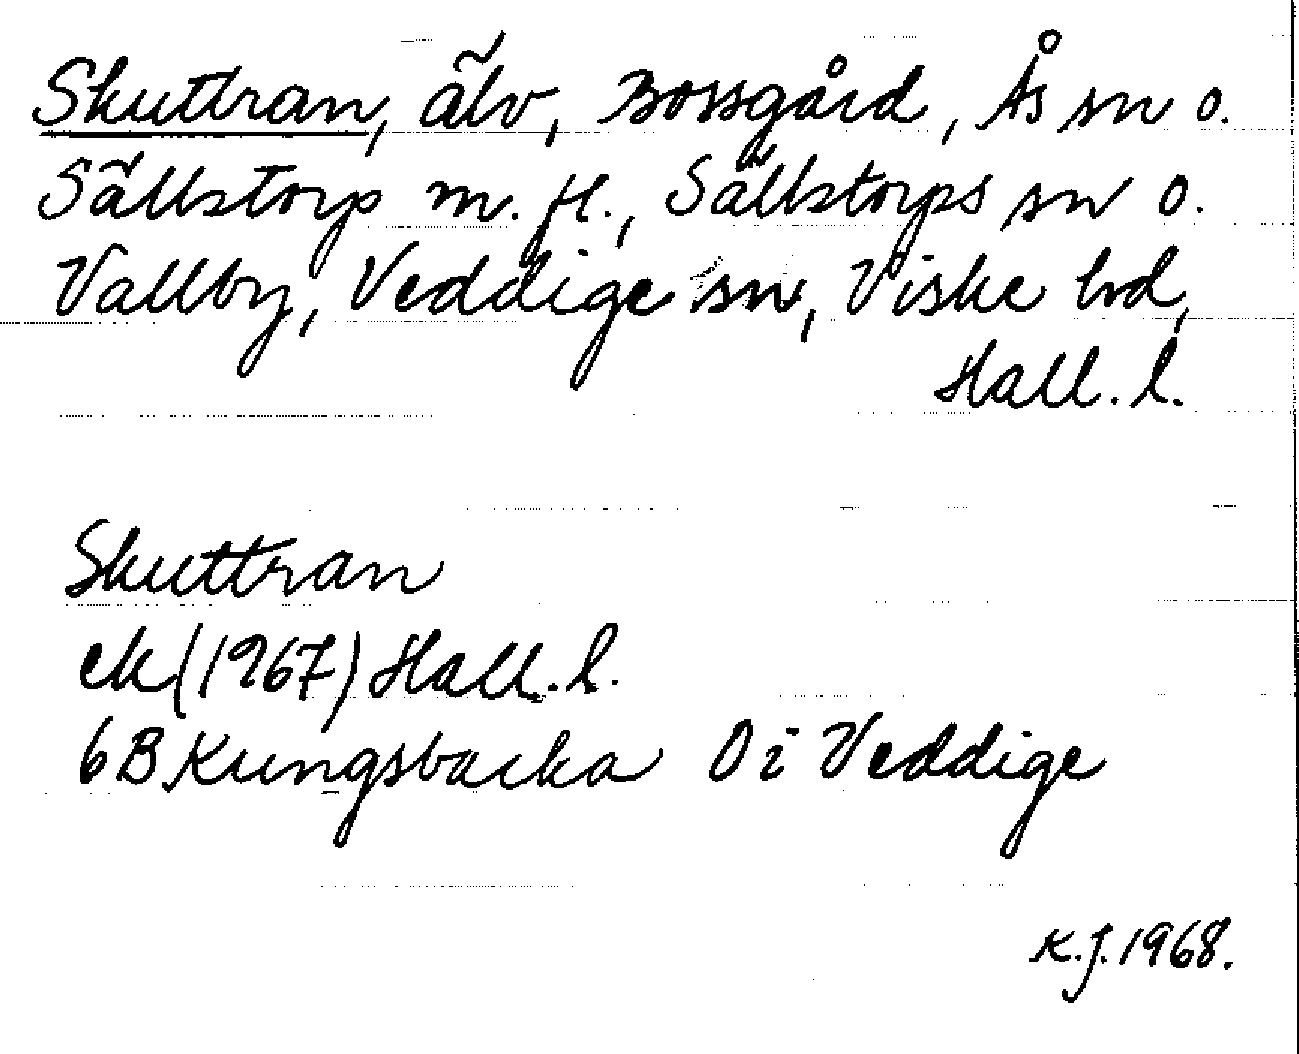 Skuttran, älv, Bossgård, Ås sn o.
Sällstorp m. fl., Sällstorps sn o.
Vallby, Veddige sn, Viske hd,
Hall. l.
Skuttran
ek (1967) Hall. l.
6B Kungsbacka O i Veddige
K.J. 1968.